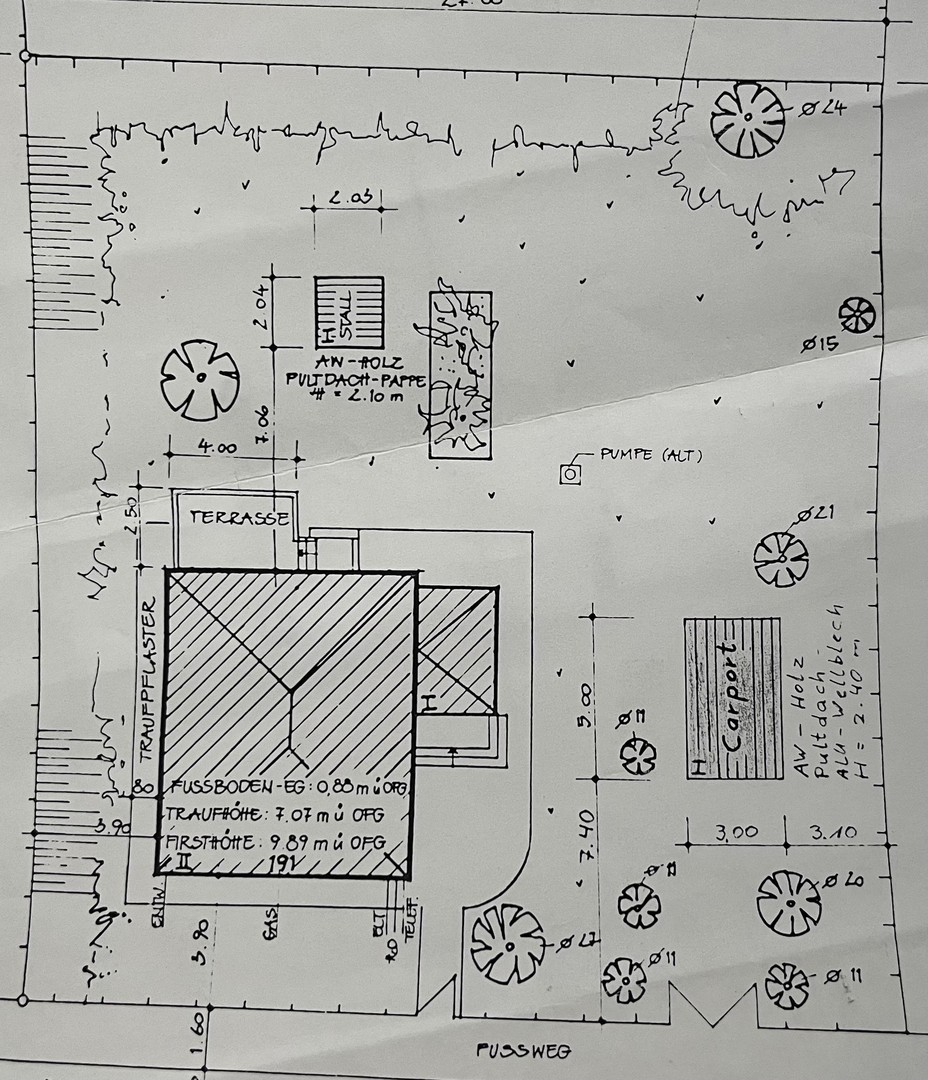 Ø 24
2.03
2.04
H
STALL
AW-HOLZ
PULTDACH-PAPPE
H = 2.10 m
Ø15
7.06
4.00
PUMPE (ALT)
2.50
TERRASSE
Ø21
TRAUFPFLASTER
I
5.00
H
Carport
AW - Holz
Pultdach
Alu - Wellblech
H = 2.40 m
80
FUSSBODEN-EG: 0,88 m ü OFG
TRAUFHÖHE: 7.07 m ü OFG
3.90
FIRSTHÖHE: 9.89 m ü OFG
II
191
7.40
3,00
3.10
Ø 20
ENTW.
GAS
ELT
TELEF.
3.90
Ø11
Ø 11
1.60
FUSSWEG